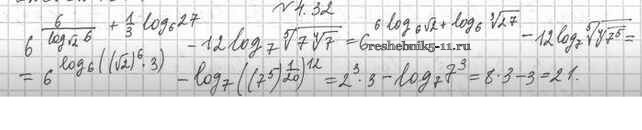 №4.32
6^{\frac{6}{\log_{\sqrt{2}} 6} + \frac{1}{3} \log_6 27} - 12 \log_7 \sqrt[5]{7\sqrt[4]{7}} = 6^{6 \log_6 \sqrt{2} + \log_6 \sqrt[3]{27}} - 12 \log_7 \sqrt[5]{\sqrt[4]{7^5}} =
= 6^{\log_6 ((\sqrt{2})^6 \cdot 3)} - \log_7 ((7^5)^{\frac{1}{20}})^{12} = 2^3 \cdot 3 - \log_7 7^3 = 8 \cdot 3 - 3 = 21.
greshebnik5-11.ru